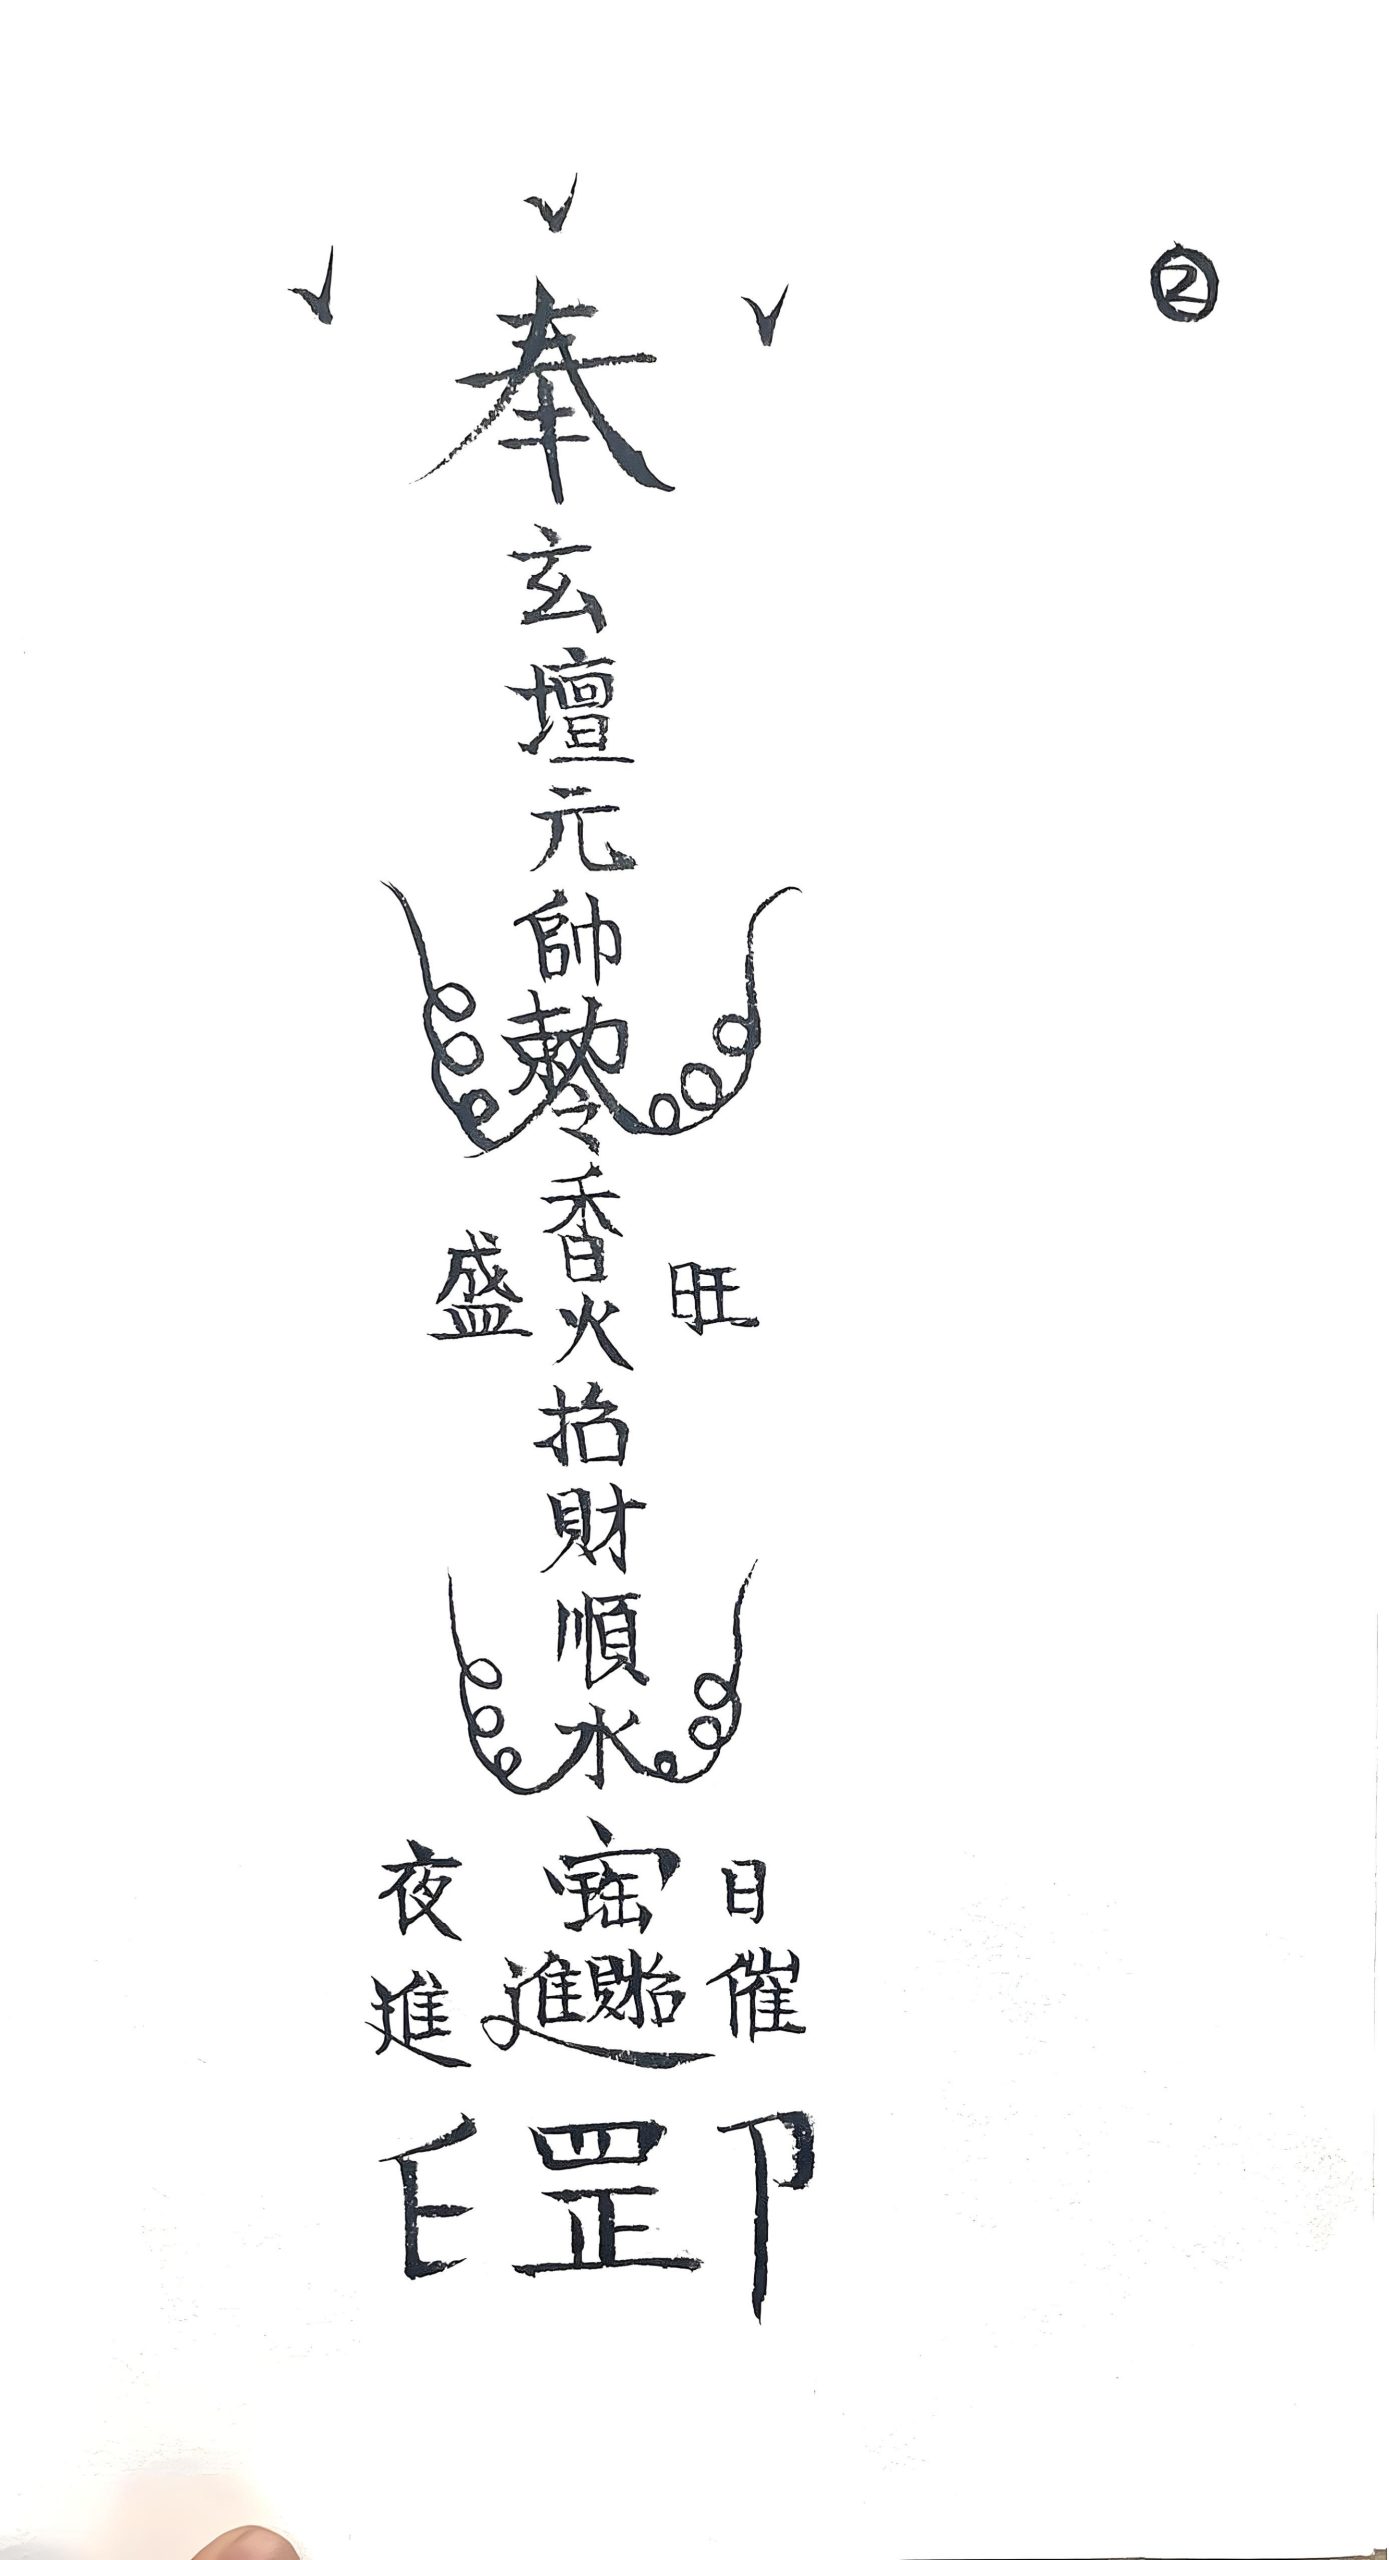 ②
奉
玄壇元帥
勅令
香火招財順水
旺
盛
日催
夜進
罡
印